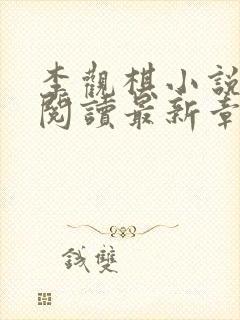 李觀棋小說
閱讀最新章
錢雙